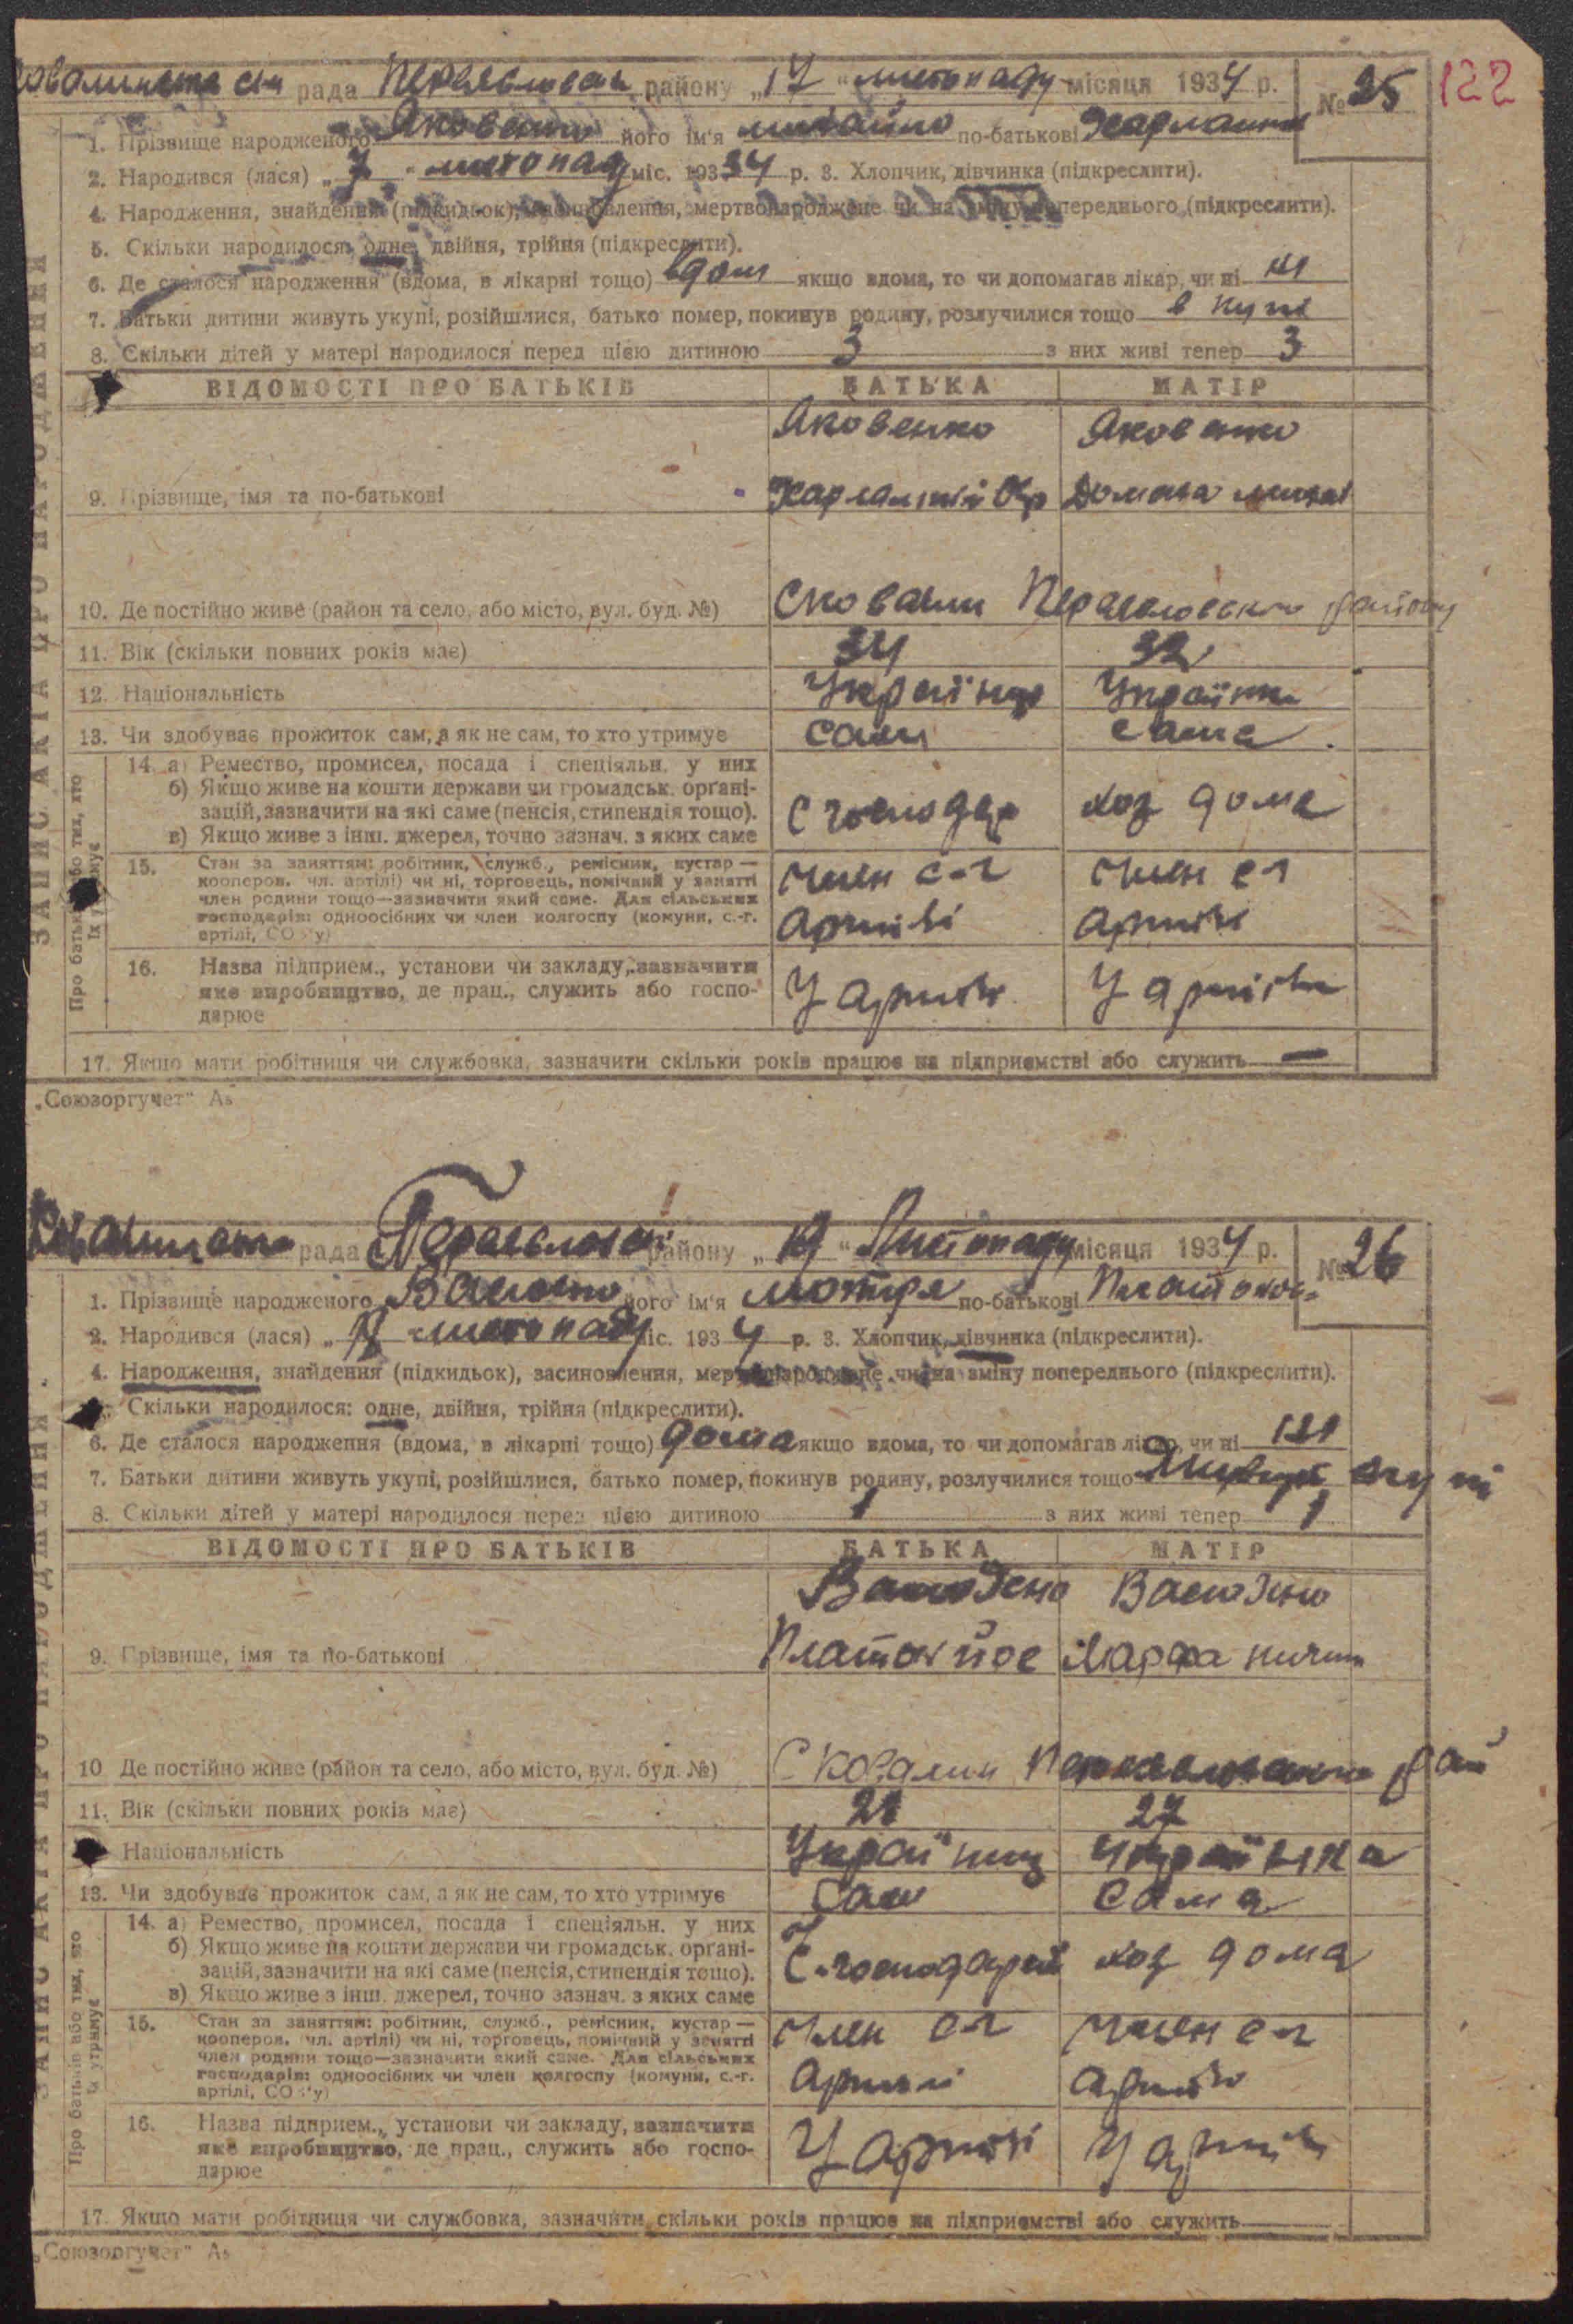 рада район­у „17“ листопаду місяця 1934 р. № 25 122
1. Прізвище народженого Яковенко його ім'я михайло по-батькові
2. Народився (лася) „7 листопаду міс. 193 34 р. 3. Хлопчик, дівчинка (підкреслити).
4. Народження, знайдення (підкидьок), засиновлення, мертвонароджене чи на зміну попереднього (підкреслити).
5. Скільки народилося: одне, двійня, трійня (підкреслити).
6. Де сталося народження (вдома, в лікарні тощо) вдома якщо вдома, то чи допомагав лікар, чи ні ні
7. Батьки дитини живуть укупі, розійшлися, батько помер, покинув родину, розлучилися тощо в купі
8. Скільки дітей у матері народилося перед цією дитиною 3 з них живі тепер 3
ВІДОМОСТІ ПРО БАТЬКІВ БАТЬКА МАТІР
Яковенко Яковенко
9. Прізвище, імя та по-батькові Домаха
10. Де постійно живе (район та село, або місто, вул. буд. №) Сковалин району
11. Вік (скільки повних років має) 34 32
12. Національність Українець Українка
13. Чи здобуває прожиток сам, а як не сам, то хто утримує сам сама
14. а) Ремество, промисел, посада і спеціяльн. у них
б) Якщо живе на кошти держави чи громадськ. органі-
зацій, зазначити на які саме (пенсія, стипендія тощо). С господар хоз дома
в) Якщо живе з інш. джерел, точно зазнач. з яких саме
15. Стан за заняттям: робітник, служб., ремісник, кустар —
коопером. чл. артілі) чи ні, торговець, помічний у занятті член с-г член с г
член родини тощо—зазначити який саме. Для сільських
господарів: одноосібних чи член колгоспу (комуни, с.-г. артілі артілі
артілі, СОЗ'у)
16. Назва підприєм., установи чи закладу, зазначити
яке виробництво, де прац., служить або госпо- У артілі У артілі
дарює
17. Якщо мати робітниця чи службовка, зазначити скільки років працює на підприємстві або служить —
ЗАПИС АКТА ПРО НАРОДЖЕННЯ
Про батьків або тих, хто
їх утримує
„Союзоргучет“
рада району „19“ Листопаду місяця 1934 р. № 26
1. Прізвище народженого його ім'я мотря по-батькові
2. Народився (лася) листопаду міс. 1934 р. 3. Хлопчик, дівчинка (підкреслити).
4. Народження, знайдення (підкидьок), засиновлення, мертвонароджене чи на зміну попереднього (підкреслити).
5. Скільки народилося: одне, двійня, трійня (підкреслити).
6. Де сталося народження (вдома, в лікарні тощо) дома якщо вдома, то чи допомагав лікар, чи ні ні
7. Батьки дитини живуть укупі, розійшлися, батько помер, покинув родину, розлучилися тощо
8. Скільки дітей у матері народилося перед цією дитиною 1 з них живі тепер 1
ВІДОМОСТІ ПРО БАТЬКІВ БАТЬКА МАТІР
9. Прізвище, імя та по-батькові Платон Марфа
10 Де постійно живе (район та село, або місто, вул. буд. №) Сковалин рай
11. Вік (скільки повних років має) 27
Національність Українець Українка
13. Чи здобуває прожиток сам, а як не сам, то хто утримує сам сама
14. а) Ремество, промисел, посада і спеціяльн. у них
б) Якщо живе на кошти держави чи громадськ. органі-
зацій, зазначити на які саме (пенсія, стипендія тощо). хоз дома
в) Якщо живе з інш. джерел, точно зазнач. з яких саме
15. Стан за заняттям: робітник, служб., ремісник, кустар —
коопером. чл. артілі) чи ні, торговець, помічний у занятті член с-г член с-г
член родини тощо—зазначити який саме. Для сільських
господарів: одноосібних чи член колгоспу (комуни, с.-г. артілі артілі
артілі, СОЗ'у)
16. Назва підприєм., установи чи закладу, зазначити
яке виробництво, де прац., служить або госпо- У артілі У артілі
дарює
17. Якщо мати робітниця чи службовка, зазначити скільки років працює на підприємстві або служить
ЗАПИС АКТА ПРО НАРОДЖЕННЯ
Про батьків або тих, хто
їх утримує
„Союзоргучет“